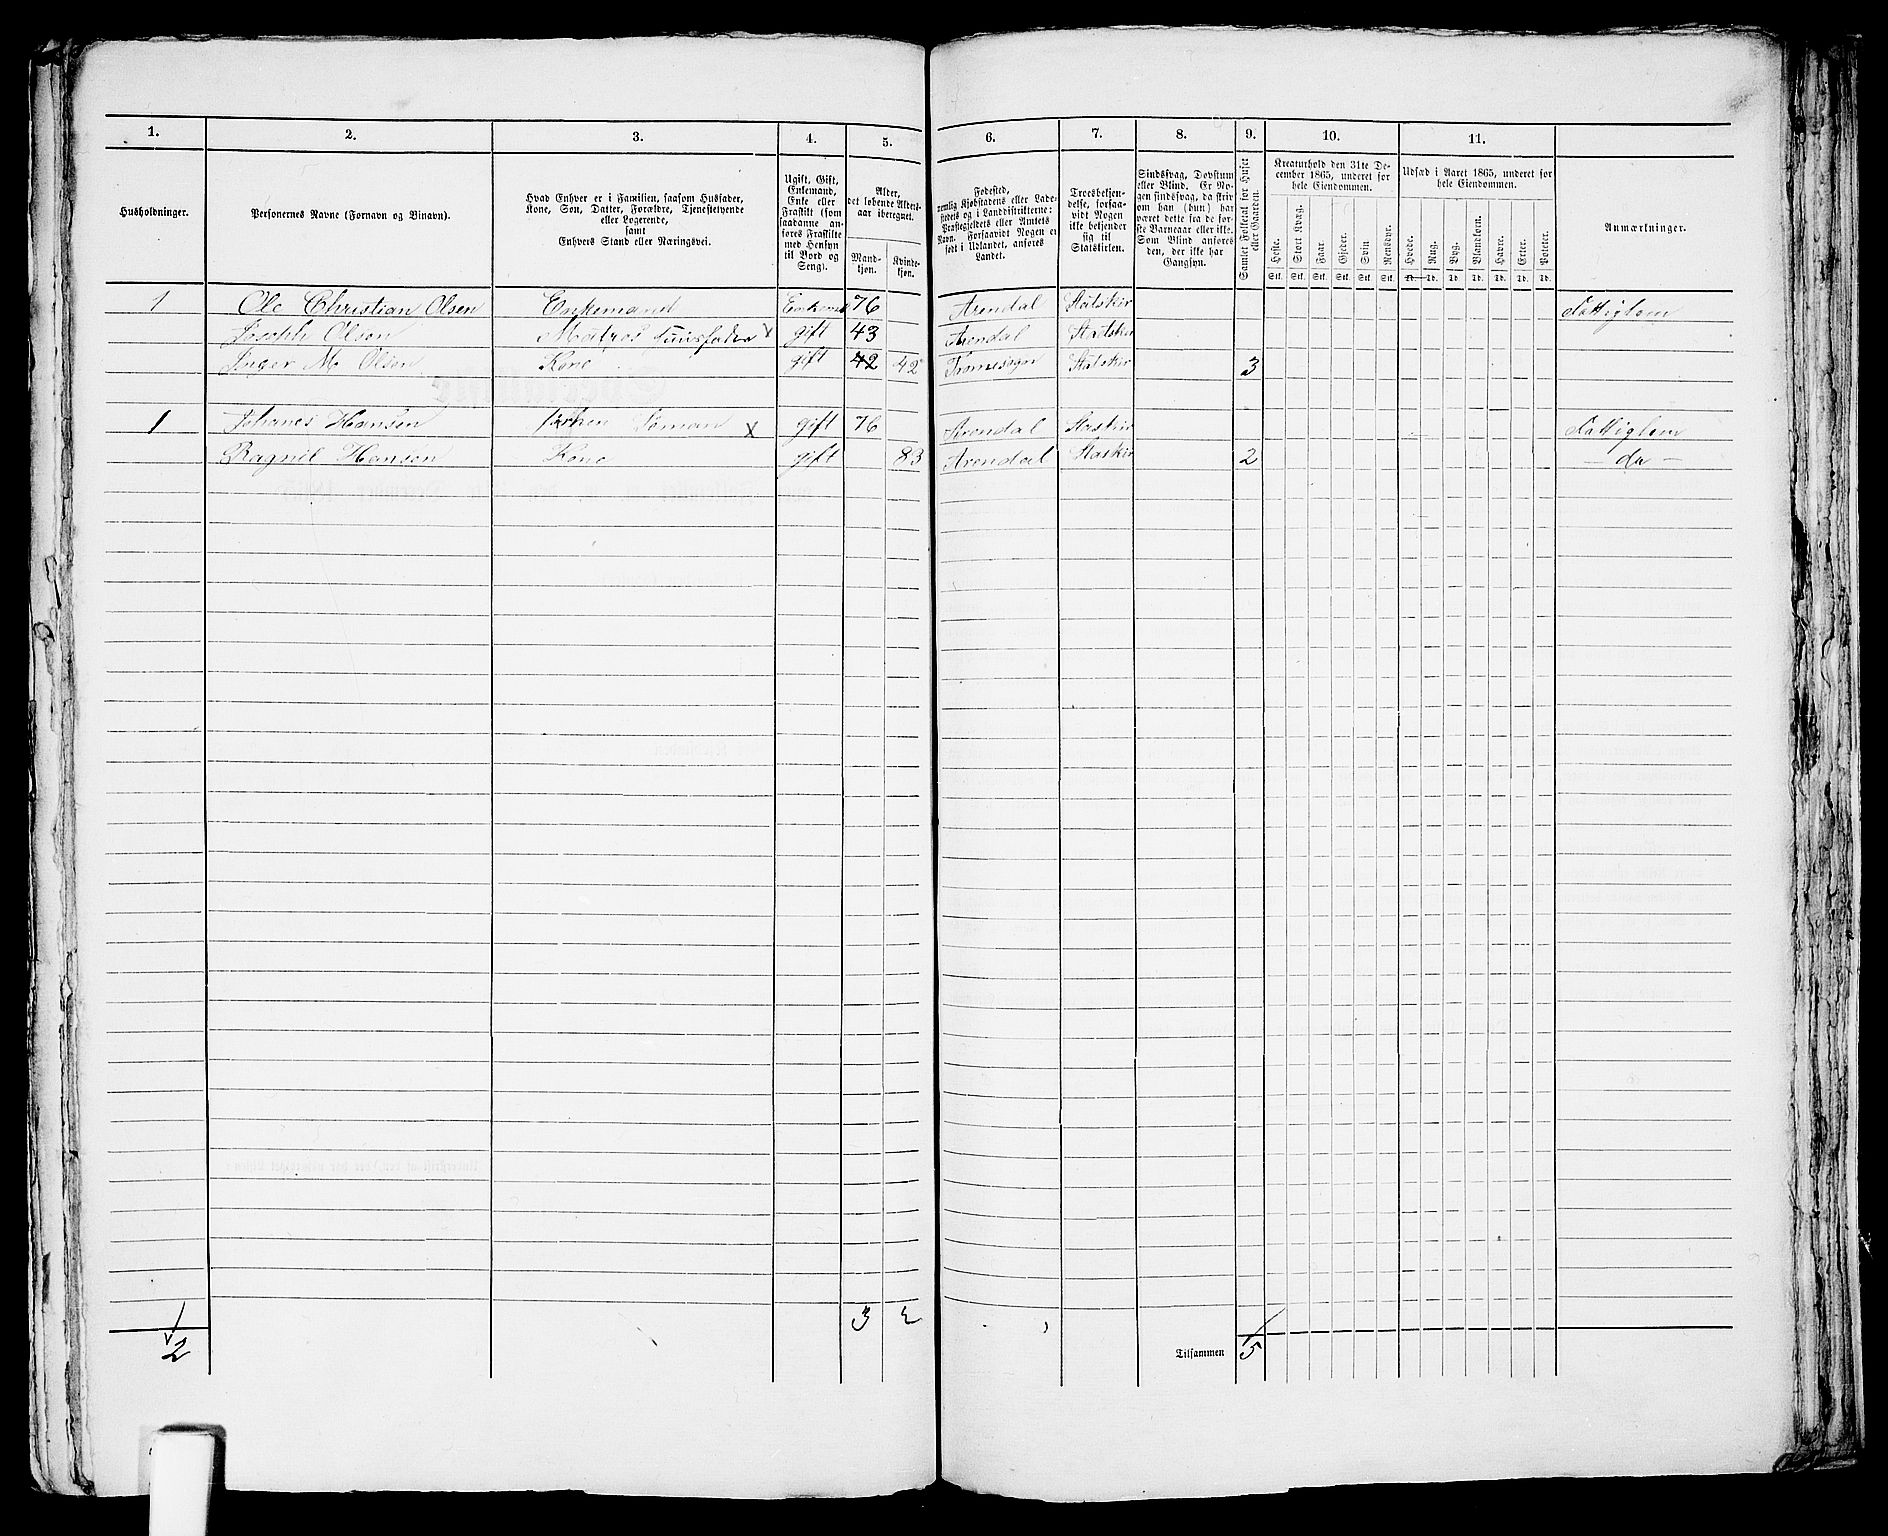 1. 2. 3. 4. 5. 6. 7. 8. 9. 10. 11.
Husholdninger.
Personernes Navne (Fornavn og Binavn).
Hvad Enhver er i Familien, saasom Husfader,
Kone, Søn, Datter, Forældre, Tjenestetyende
eller Logerende,
samt
Enhvers Stand eller Næringsvei.
Ugift, Gift,
Enkemand,
Enke eller
Fraskilt (som
saadanne an-
føres Fraskilte
med Hensyn
til Bord og
Seng).
Alder,
det løbende Alders-
aar iberegnet.
Mand-
kjøn.
Kvinde-
kjøn.
Fødested,
nemlig Kjøbstadens eller Lade-
stedets og i Landdistrikterne:
Præstegjeldets eller Amtets
Navn. Forsaavidt Nogen er
født i Udlandet, anføres
Landet.
Troesbekjen-
delse, forsaa-
vidt Nogen
ikke bekjender
sig til
Statskirken.
Sindssvag, Døvstum
eller Blind. Er No-
gen sindssvag, da skriv
om han (hun) har
været dette fra de før-
ste Barneaar eller ikke.
Som Blind anføres
den, der ikke har
Gangsyn.
Samlet Folketal for Huset
eller Gaarden.
Kreaturhold den 31te De-
cember 1865, underet for
hele Eiendommen.
Heste. Stort Kvæg. Faar. Gjeder. Svin Rensdyr.
Stk. Stk. Stk. Stk. Stk. Stk.
Udsæd i Aaret 1865, underet for
hele Eiendommen.
Hvede. Rug. Byg. Blandkorn. Havre. Erter. Poteter.
Td. Td. Td. Td. Td. Td. Td.
Anmærkninger.
1 Ole Christian Olsen Enkemand Enkemd 76 Arendal Statskir Fattiglem
Joseph Olsen Matros Huusfader x gift 43 Arendal Statskir
Inger M Olsen Kone gift 42 42 Tromøsogn Statskir 3
1 Johanes Hansen Søman x gift 76 Arendal Staskir Fattiglem
Ragnil Hansen Kone gift 83 Arendal Staskir 2 — do —
3 2
2 Tilsammen 5